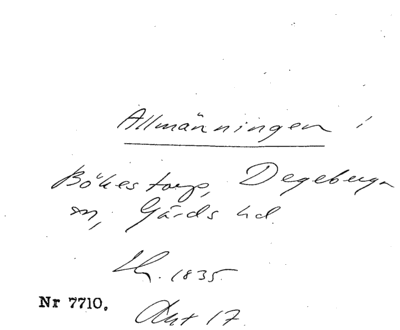 Allmänningen i
Bökestorp, Degeberga
sn, Gärds hd.
1835.
Nr 7710.
Akt 17